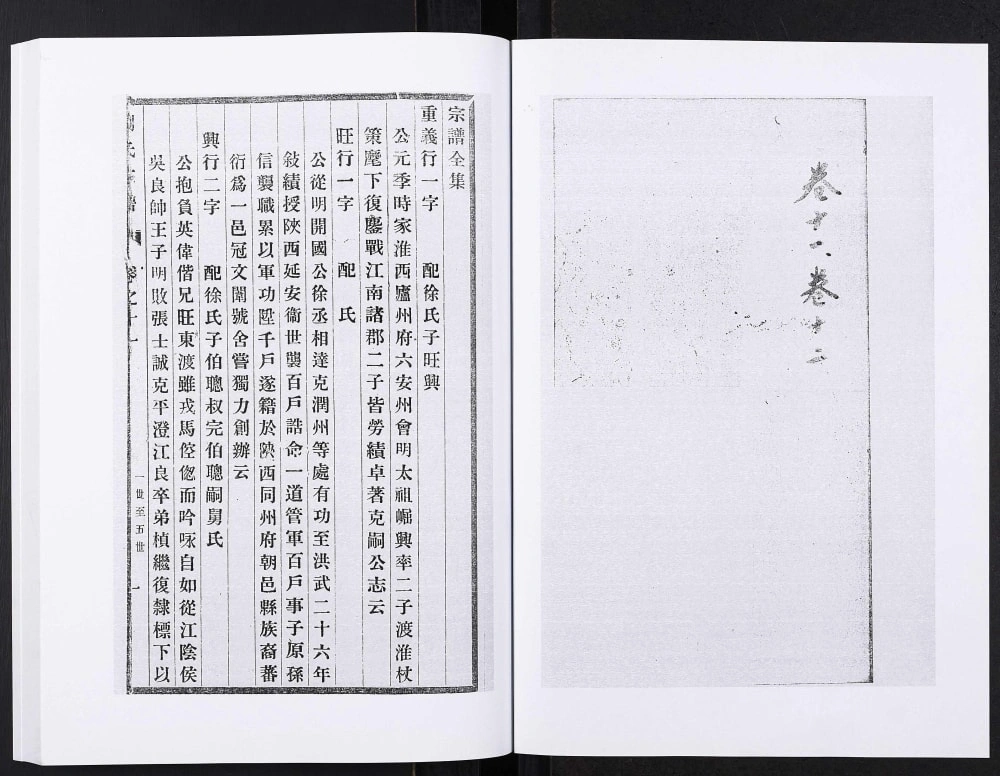 卷十一卷十二
宗譜全集
重義行一字　配徐氏子旺興
公元季時家淮西廬州府六安州會明太祖崛興率二子渡淮杖
策麾下復鏖戰江南諸郡二子皆勞績卓著克嗣公志云
旺行一字　配　氏
公從明開國公徐丞相達克潤州等處有功至洪武二十六年
敍績授陝西延安衞世襲百戶誥命一道管軍百戶事子原孫
信襲職累以軍功陞千戶遂籍於陝西同州府朝邑縣族裔蕃
衍爲一邑冠文闈號舍嘗獨力創辦云
興行二字　配徐氏子伯聰叔完伯聰嗣舅氏
公抱負英偉偕兄旺東渡雖戎馬倥傯而吟咏自如從江陰侯
吳良帥王子明敗張士誠克平澄江良卒弟楨繼復隸標下以
氏　譜　卷之十一　一世至五世　一